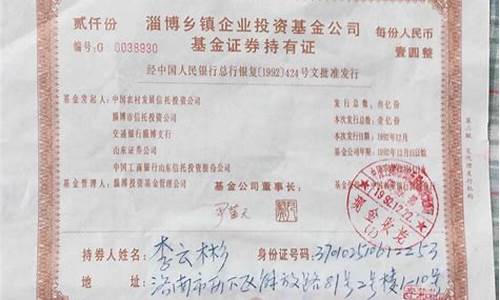 贰仟份 淄博乡镇企业投资基金公司 每份人民币
编号:G 0038930 基金证券持有证 壹圆整
经中国人民银行总行银复(1992)424号文批准发行
基金发起人:中国农村发展信托投资公司 发行总额:叁亿份
淄博市信托投资公司 本次发行总额:壹亿份
交通银行淄博支行 本次发行日期:1992年12月
山东证券公司
中国工商银行山东信托投资股份公司
基金管理人:淄博投资基金管理公司 基金公司董事长:
现金收讫
持券人姓名: 李云彬 身份证号码:
地 址: 济南市历下区解放路81号2号楼1-10号